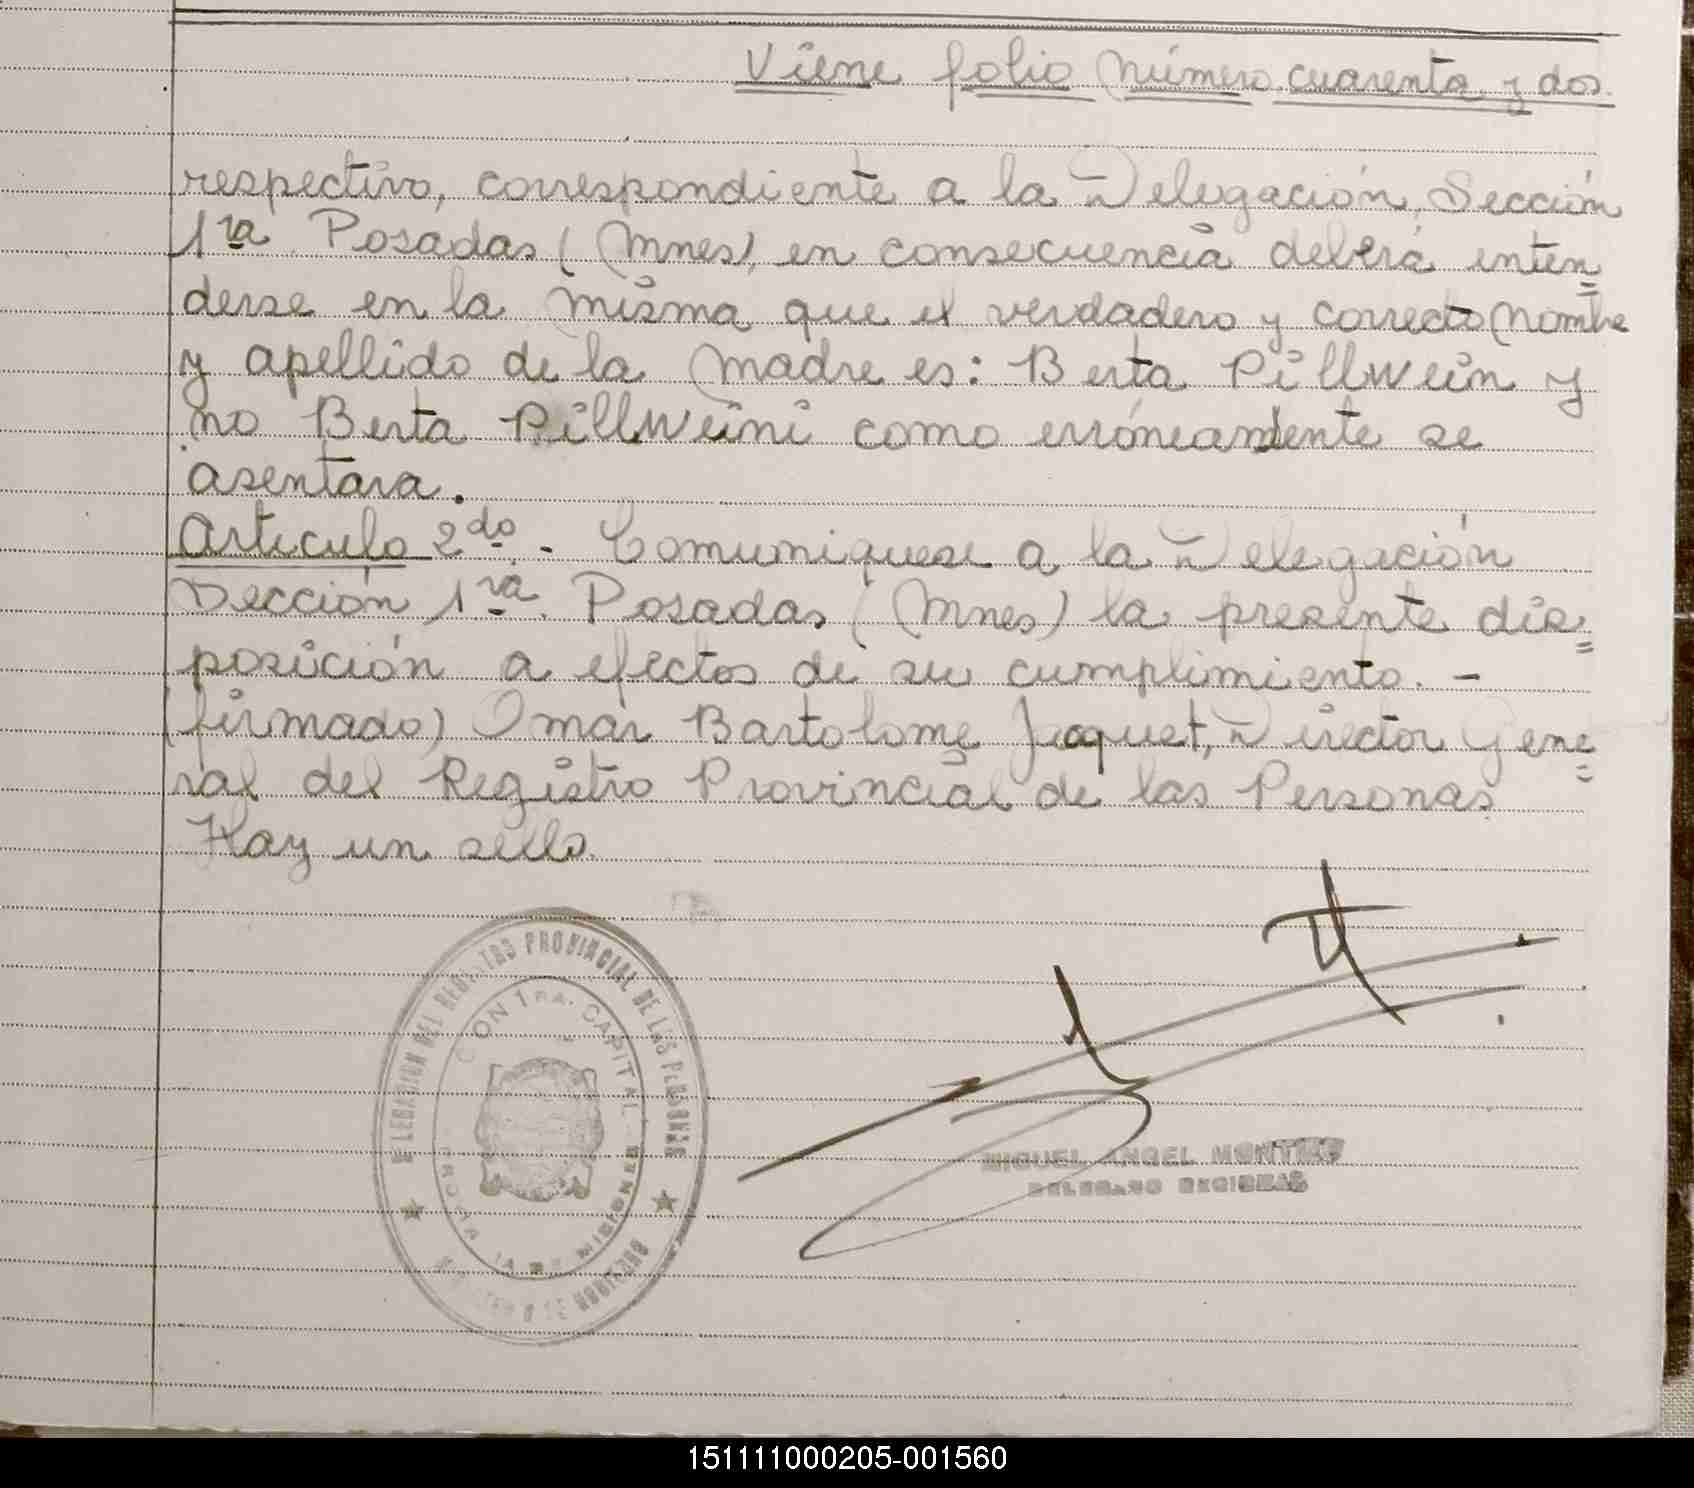 Viene folio número cuarenta y dos.
respectivo, correspondiente a la Delegación, Sección
1ra. Posadas (Mnes), en consecuencia deberá enten=
derse en la misma que el verdadero y correcto nombre
y apellido de la madre es: Berta Pillwein y
no Berta Pillweini como erróneamente se
asentara.
Artículo 2do. - Comuniquese a la Delegación
Sección 1ra. Posadas (Mnes) la presente dis=
posición a efectos de su cumplimiento. -
(firmado) Omar Bartolome Jaquet, Director Gene=
ral del Registro Provincial de las Personas
Hay un sello.
DEL REGISTRO PROVINCIAL DE LAS PERSONAS
1RA. CAPITAL
MISIONES
MIGUEL ANGEL
151111000205-001560